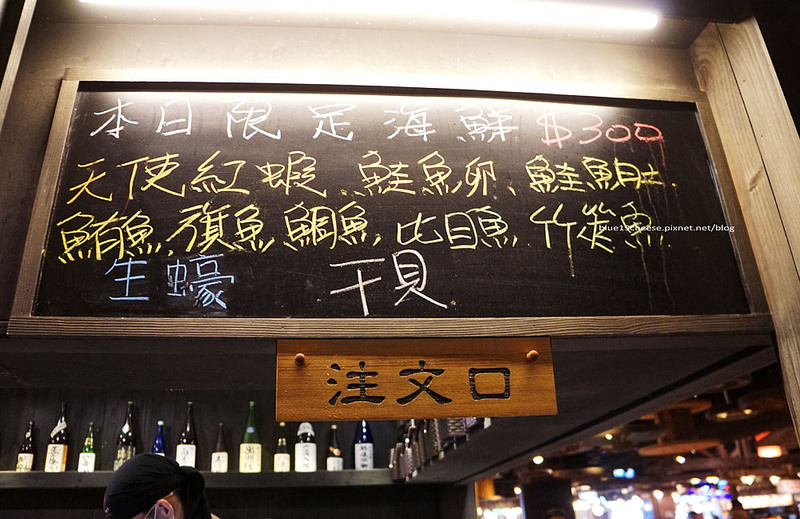 本日限定海鮮 $300
天使紅蝦、鮭魚卵、鮭魚肚、
鮪魚、旗魚、鯛魚、比目魚、竹筴魚、
生蠔 干貝
blue19cheese.pixnet.net/blog
注文口